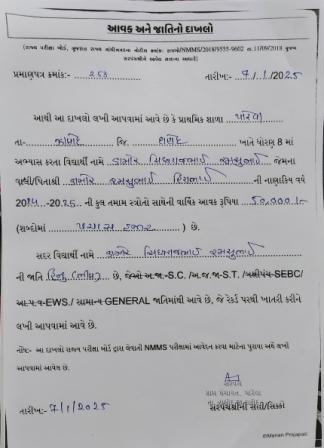 આવક અને જાતિનો દાખલો
(રાજ્ય પરીક્ષા બોર્ડ, ગુજરાત રાજ્ય ગાંધીનગરના નોટિસ ક્રમાંક: રાપબો/NMMS/2018/9555-9602 તા.11/09/2018 મુજબ
સરપંચશ્રીએ આપેલ હોવા અંગે)
પ્રમાણપત્ર ક્રમાંક:- 253 તારીખ:- 7/1/2025
આથી આ દાખલો લખી આપવામાં આવે છે કે પ્રાથમિક શાળા
તા- જિ. ખાતે ધોરણ 8 માં
અભ્યાસ કરતા વિદ્યાર્થી નામે ડામોર જેમના
વાલી/પિતાશ્રી ડામોર ની નાણાકિય વર્ષ
2024 -2025 ની કુલ તમામ સ્ત્રોતો સાથેની વાર્ષિક આવક રૂપિયા 50,000/-
(શબ્દોમાં પચાસ હજાર ) છે.
સદર વિદ્યાર્થી નામે ડામોર
ની જાતિ હિન્દુ છે, જેઓ અ.જા-S.C. /અ.જ.જા-S.T. /બક્ષીપંચ-SEBC/
EWS./ સામાન્ય GENERAL જાતિમાંથી આવે છે, જે રેકર્ડ પરથી ખાતરી કરીને
લખી આપવામાં આવે છે.
નોંધ:- આ દાખલો રાજ્ય પરીક્ષા બોર્ડ દ્વારા લેવાતી NMMS પરીક્ષામાં આવેદન કરવા માટેના પુરાવા અર્થે લખી
આપવામાં આવેલ છે.
સરપંચ
ગ્રામ પંચાયત,
તારીખ:- 7/1/2025 સરપંચશ્રીની સહી/સિક્કો
©Manan Prajapati